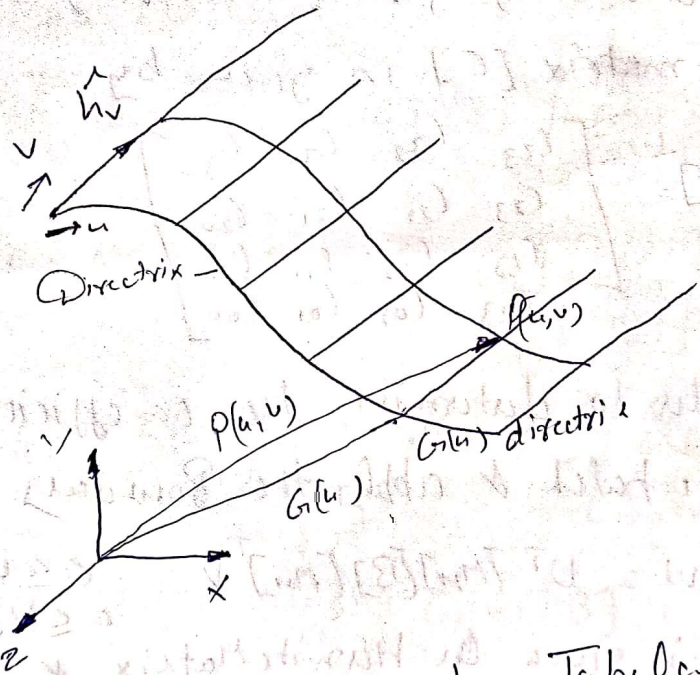 n̂v
v
→ u
Directrix
P(u,v)
P(u,v)
G(u) directrix
G(u)
Y
X
Z